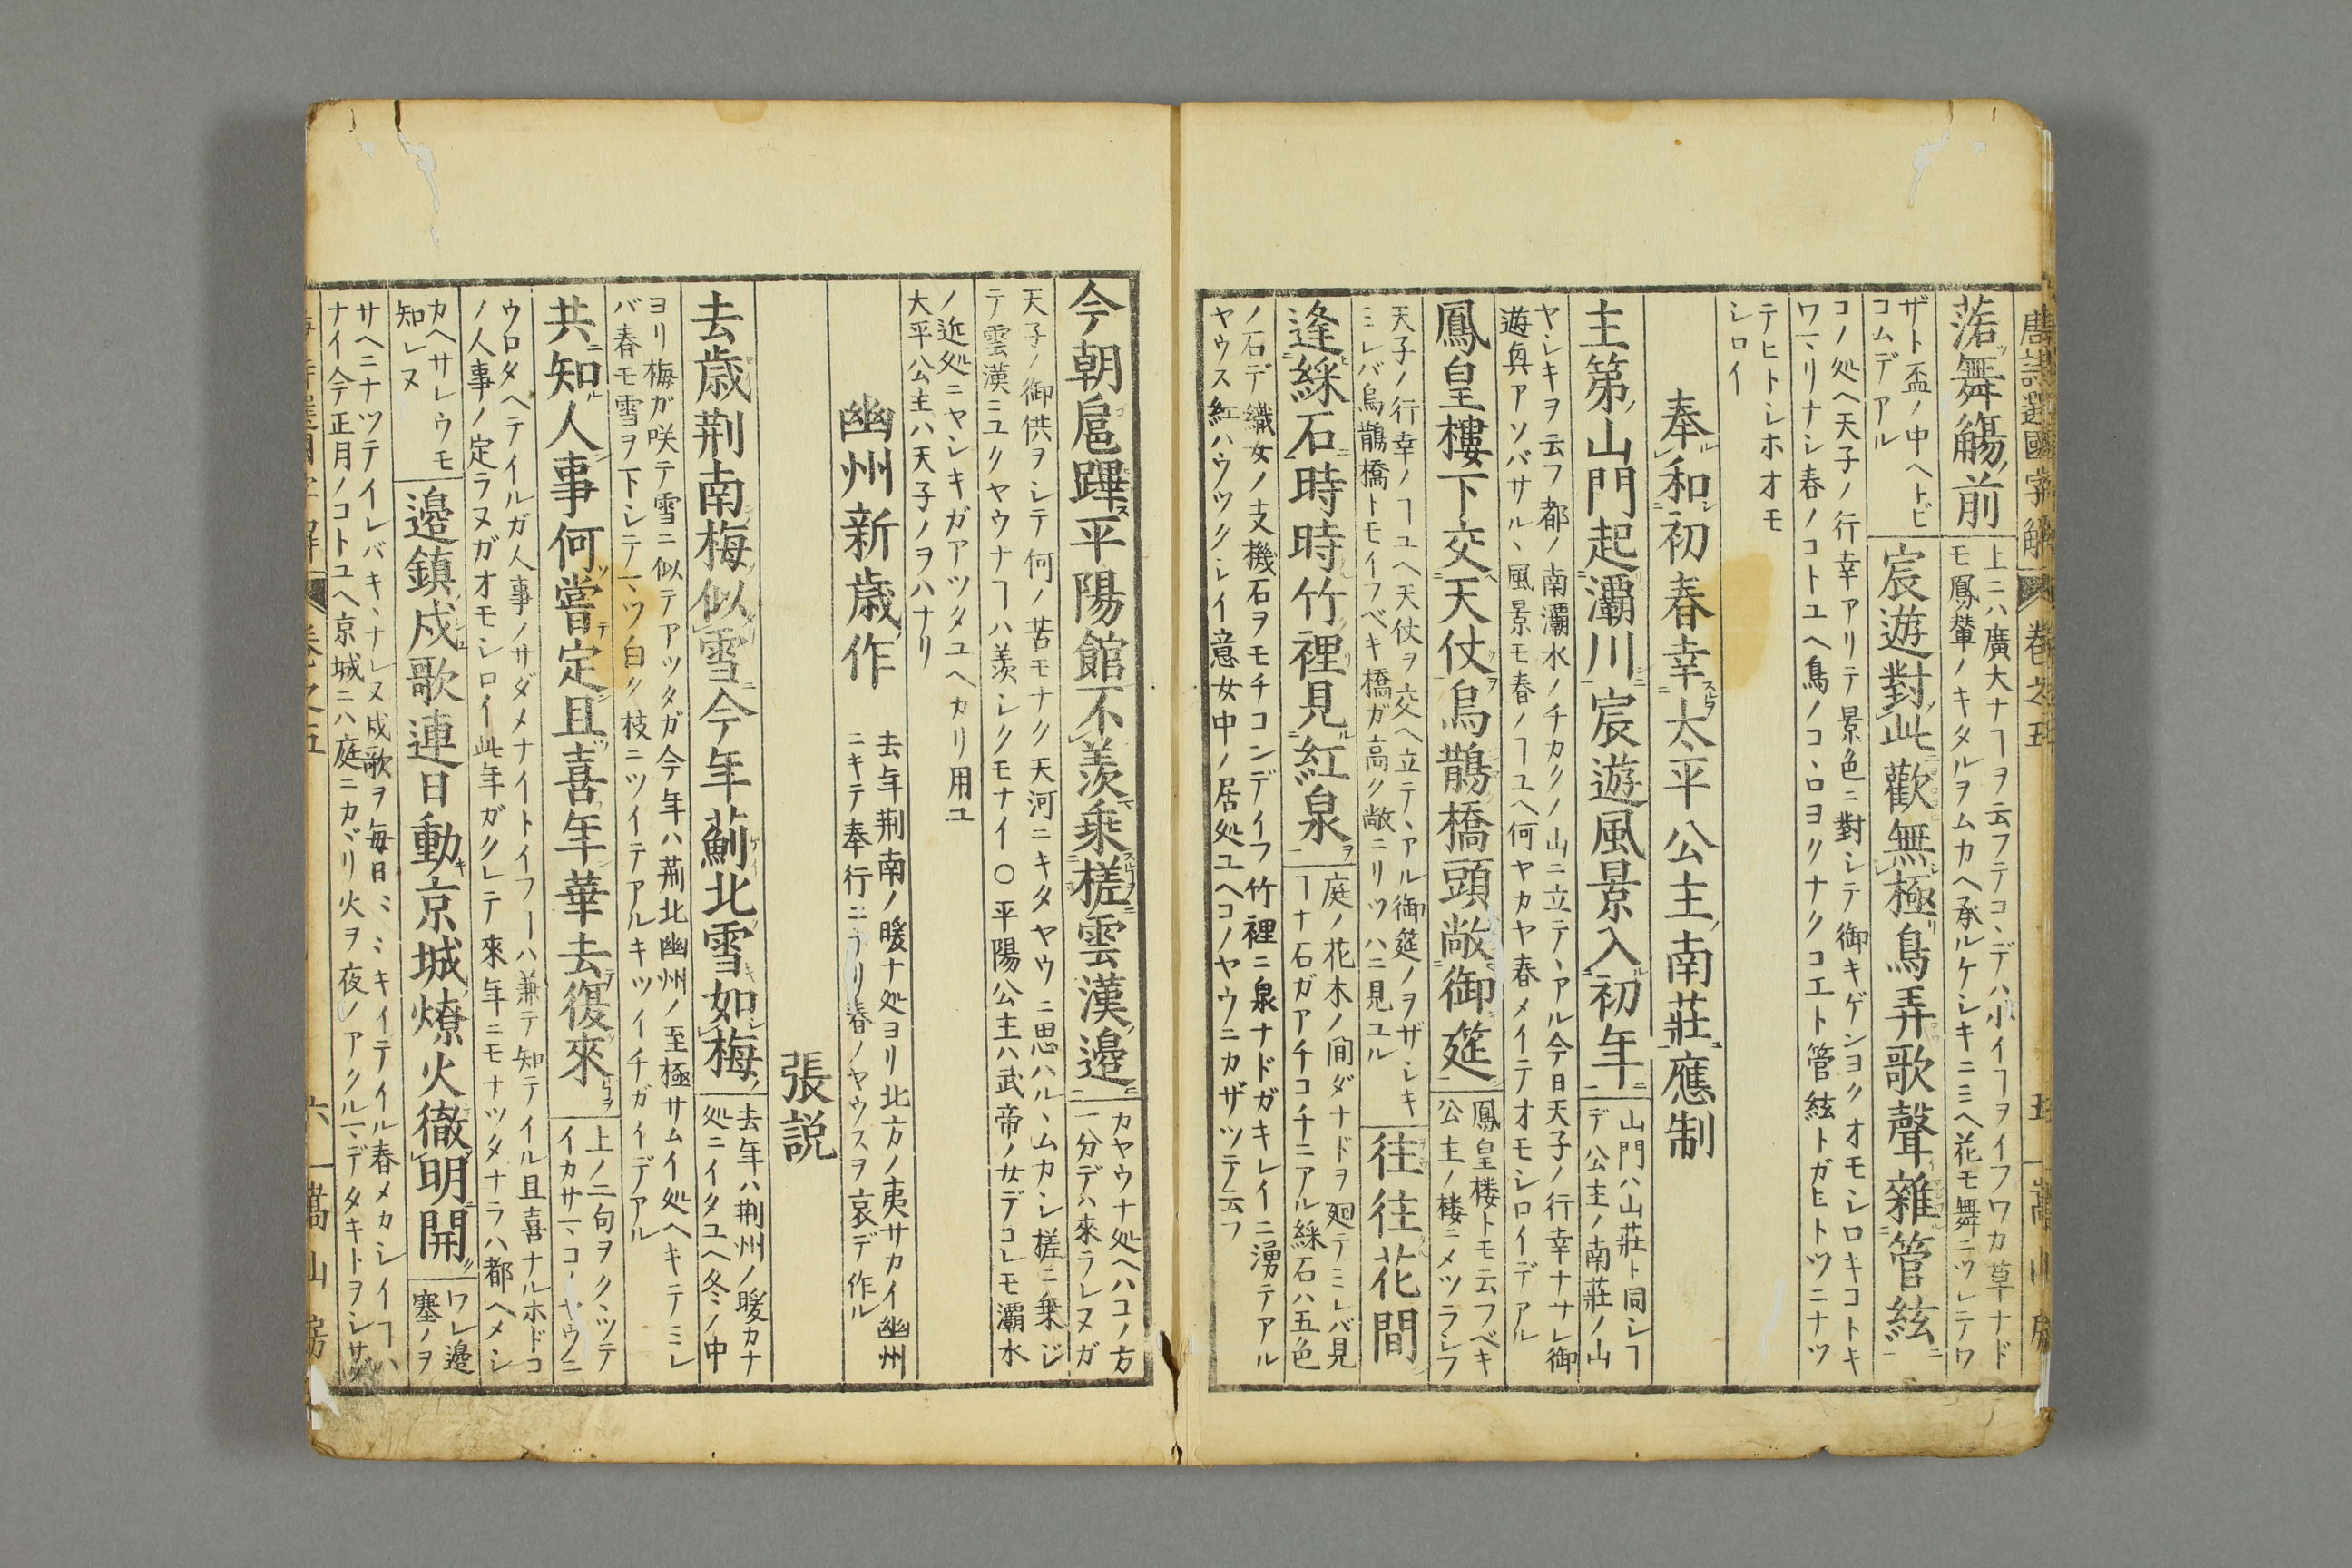 唐詩選國字解 卷之五 五 嵩山房
落舞觴前
上ニハ廣大ナヿヲ云フテコヽデハ小イヿヲイフワカ草ナド
モ鳳輦ノキタルヲムカヘ承ルケシキニミヘ花モ舞ニツレテワ
ザト盃ノ中ヘトビ
コムデアル
宸遊對此歡無極鳥弄歌聲雜管絃
コノ処ヘ天子ノ行幸アリテ景色ニ對シテ御キゲンヨクオモシロキコトキ
ワマリナシ春ノコトユヘ鳥ノコヽロヨクナクコエト管絃トガヒトツニナツ
テヒトシホオモ
シロイ
奉和初春幸太平公主南莊應制
主第山門起灞川宸遊風景入初年
山門ハ山莊ト同シヿ
デ公主ノ南莊ノ山
ヤシキヲ云フ都ノ南灞水ノチカクノ山ニ立テヽアル今日天子ノ行幸ナサレ御
遊興アソバサルヽ風景モ春ノヿユヘ何ヤカヤ春メイテオモシロイデアル
鳳皇樓下交天仗烏鵲橋頭敞御筵
鳳皇楼トモ云フベキ
公主ノ楼ニメツラシフ
天子ノ行幸ノヿユヘ天仗ヲ交ヘ立テヽアル御筵ノヲザシキ
ミレバ烏鵲橋トモイフベキ橋ガ高ク敞ニリツハニ見ユル
往往花間
逢綵石時時竹裡見紅泉
庭ノ花木ノ間ダナドヲ廻テミレバ見
ヿナ石ガアチコチニアル綵石ハ五色
ノ石デ織女ノ支機石ヲモチコンデイフ竹裡ニ泉ナドガキレイニ湧テアル
ヤウス紅ハウツクシイ意女中ノ居処ユヘコノヤウニカザツテ云フ
今朝扈蹕平陽館不羨乗槎雲漢邉
カヤウナ処ヘハコノ方
一分デハ來ラレヌガ
天子ノ御供ヲシテ何ノ苦モナク天河ニキタヤウニ思ハルヽムカシ槎ニ乗ジ
テ雲漢ニユクヤウナヿハ羨シクモナイ〇平陽公主ハ武帝ノ女デコレモ灞水
ノ近処ニヤシキガアツタユヘカリ用ユ
大平公主ハ天子ノヲハナリ
幽州新歳作
去年荆南ノ暖ナ処ヨリ北方ノ夷サカイ幽州
ニキテ奉行ニナリ春ノヤウスヲ哀デ作ル
張説
去歳荆南梅似雪今年薊北雪如梅
去年ハ荆州ノ暖カナ
処ニイタユヘ冬ノ中
ヨリ梅ガ咲テ雪ニ似テアツタガ今年ハ薊北幽州ノ至極サムイ処ヘキテミレ
バ春モ雪ヲ下シテマツ白ク枝ニツイテアルキツイチガイデアル
共知人事何嘗定且喜年華去復來
上ノ二句ヲクヽツテ
イカサマコノヤウニ
ウロタヘテイルガ人事ノサダメナイトイフヿハ兼テ知テイル且喜ナルホドコ
ノ人事ノ定ラヌガオモシロイ此年ガクレテ來年ニモナツタナラハ都ヘメシ
カヘサレウモ
知レヌ
邉鎮戍歌連日動京城燎火徹明開
ワレ邉
塞ノヲ
サヘニナツテイレバキヽナレヌ戍歌ヲ毎日〻〻キイテイル春メカシイヿハ
ナイ今正月ノコトユヘ京城ニハ庭ニカヾリ火ヲ夜ノアクルマデタキトヲシサゾ
卷之五 六 嵩山房